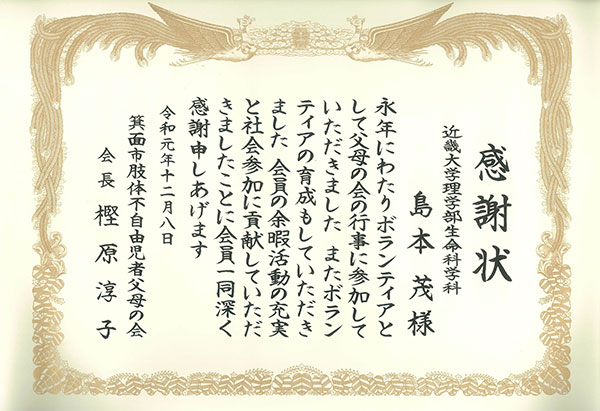 感謝状
近畿大学理学部生命科学科
島本茂様
永年にわたりボランティアと
して父母の会の行事に参加して
いただきました またボラン
ティアの育成もしていただき
ました 会員の余暇活動の充実
と社会参加に貢献していただ
きましたことに会員一同深く
感謝申しあげます
令和元年十二月八日
箕面市肢体不自由児者父母の会
会長 樫原淳子